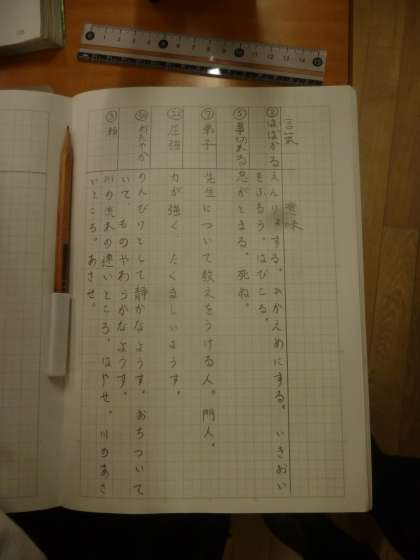 言葉
意味
② はばかる
えんりょする。ひかえめにする。いきおい
をふるう。はびこる。
⑤ 事切れる
息がとまる。死ぬ。
⑦ 弟子
先生について教えをうける人。門人。
㉒ 屈強
力が強く たくましいようす。
おだやか
のんびりとして静かなようす。おちついて
いて、ものやわらかなようす。
③ 瀬
川の流れの速いところ。はやせ。川のあさ
いところ。あさせ。